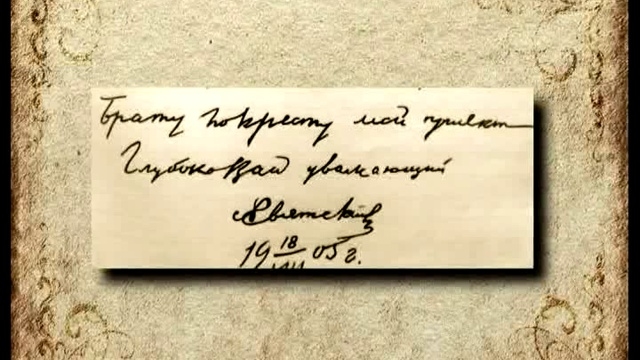 Брату по кресту мой привет
Глубоко Вас уважающий
Святский
19 18/VIII 05 г.